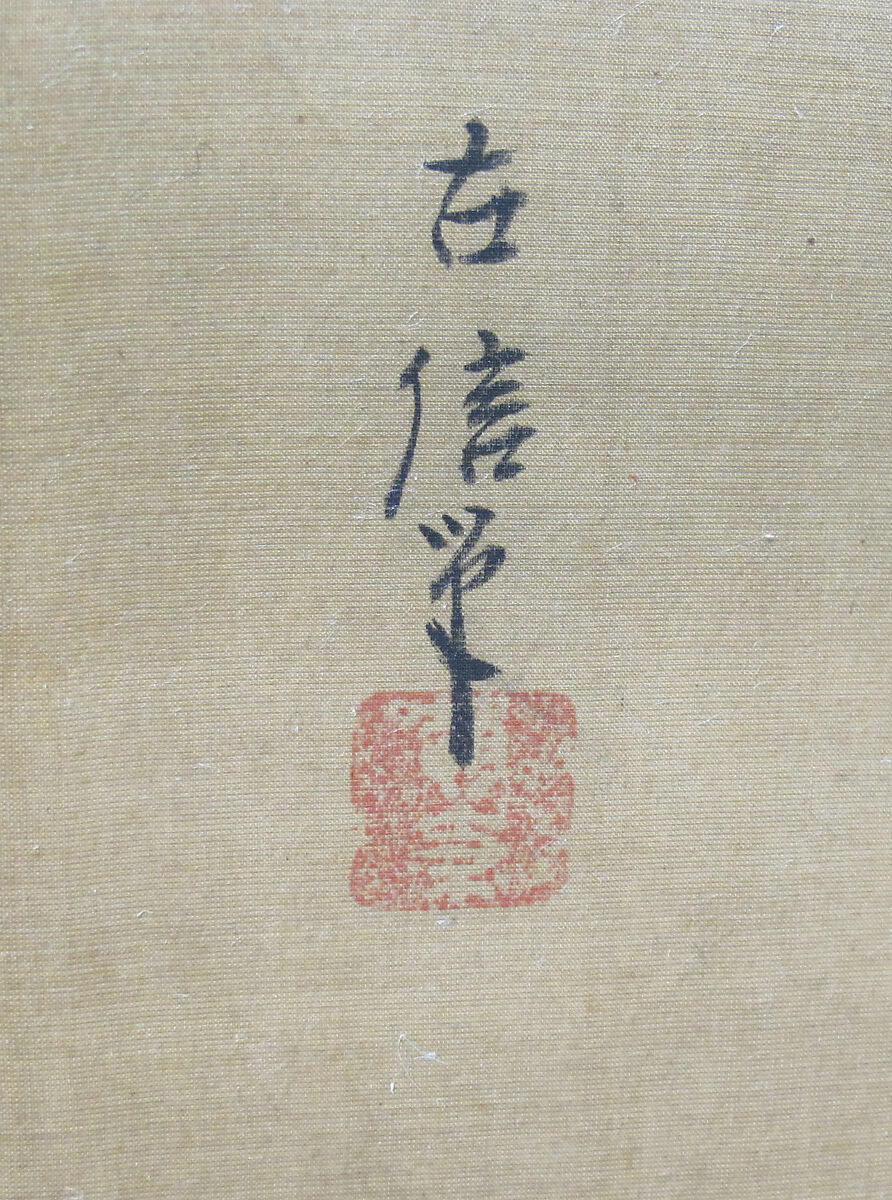 古信筆